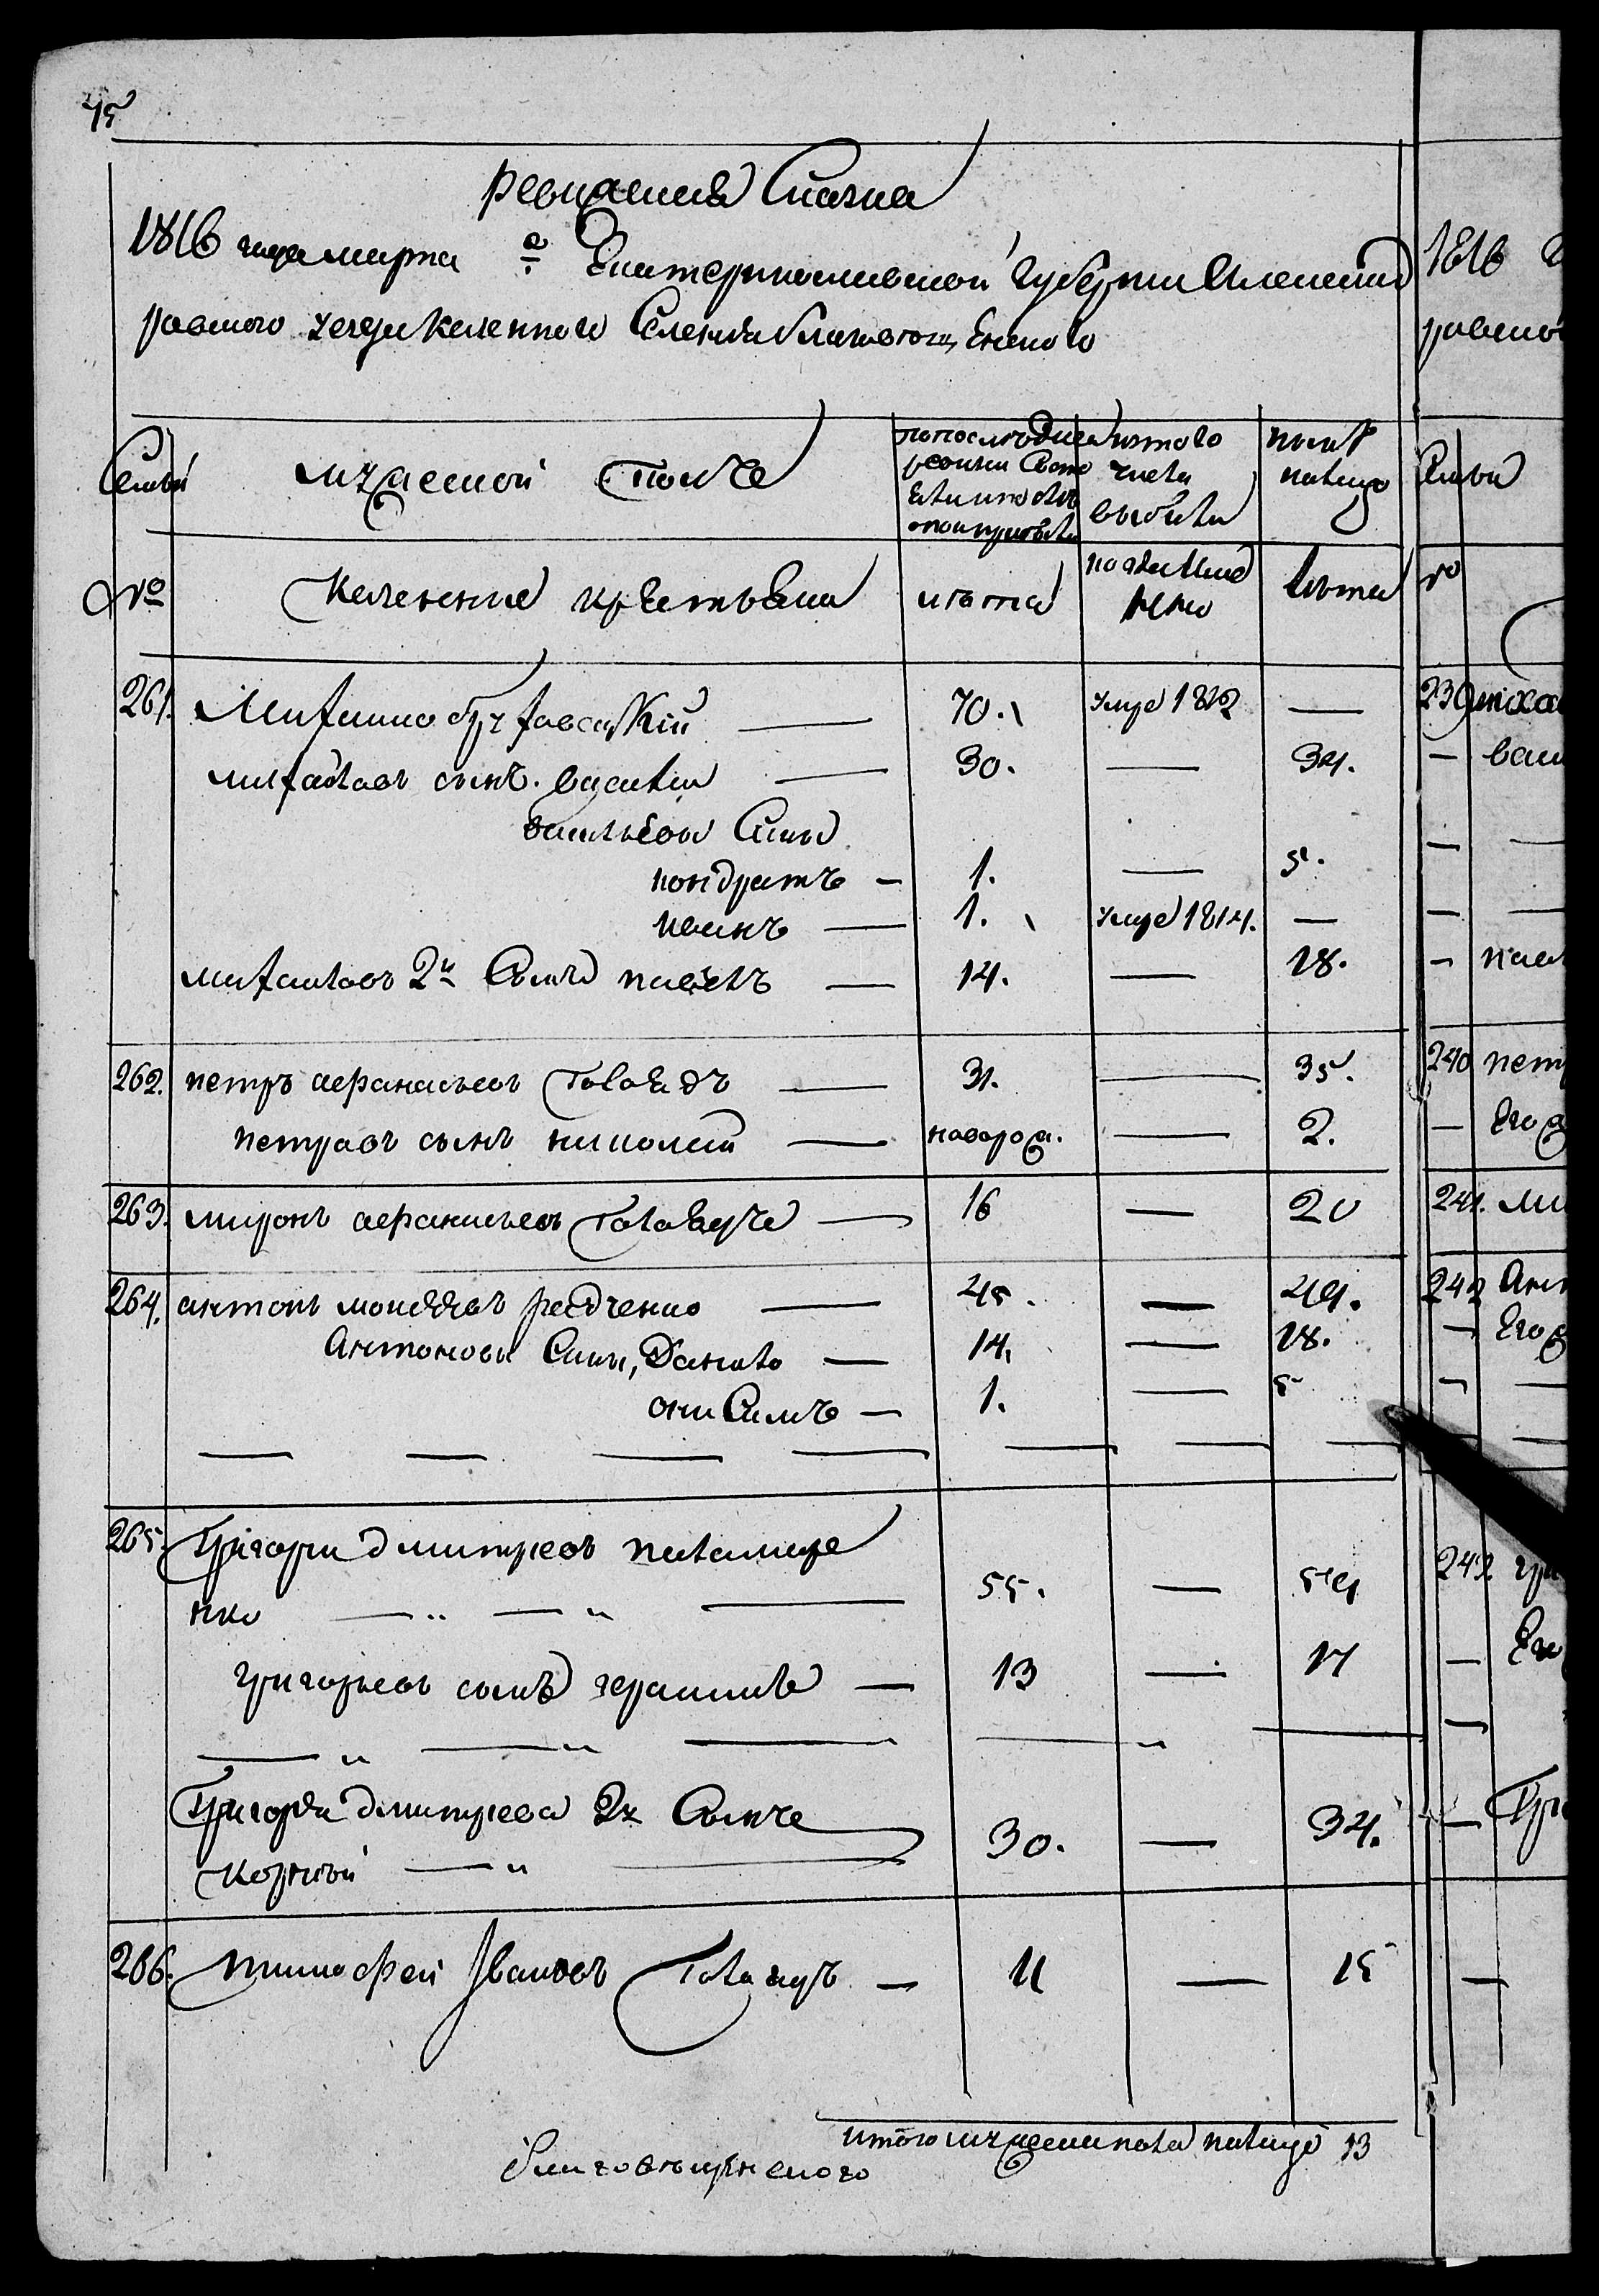 45
ревизская Сказка
1816 года марта а Екатеринославской губернии Александ
ровского уезда казенного Селения благовещенского
Семьи
мужеской Полъ
По последней ревизии Состояло и после оной прибыло
Из того числа выбыло
Ныне налицо
№
Казенные крестьяне
Лета
Когда именно
Лета
261. Михаило 70. умре 1812 —
михайловъ сынъ. василий — 30. — 34.
васильевы Сыны
кондратъ — 1. — 5.
иванъ — 1. умре 1814. —
михайловъ 2й Сынъ павелъ — 14. — 18.
262. петръ афанасьевъ Головадъ — 31. — 35.
петровъ сынъ николай — новорож. — 2.
263. миронъ афанасьевъ — 16 — 20
264. антонъ редченко — 45. — 49.
Антоновы Сыны, Данило — 14, — 18.
ониСимъ — 1. — 5
265. Григори дмитриевъ
нко — 55. — 59
григорьевъ сынъ герасимъ — 13 — 17
Григорья дмитриева 2й Сынъ
корней — 30. — 34.
266. тимофей Ивановъ — 11 — 15
итого мужеска пола налицо 13
благовещенского
1816
ровско
Семьи
№
239 михаи
— васи
—
—
— паве
240 петр
— Его
241. ми
242 Ант
— Его
—
243 гри
— Его
—
— Гри
—